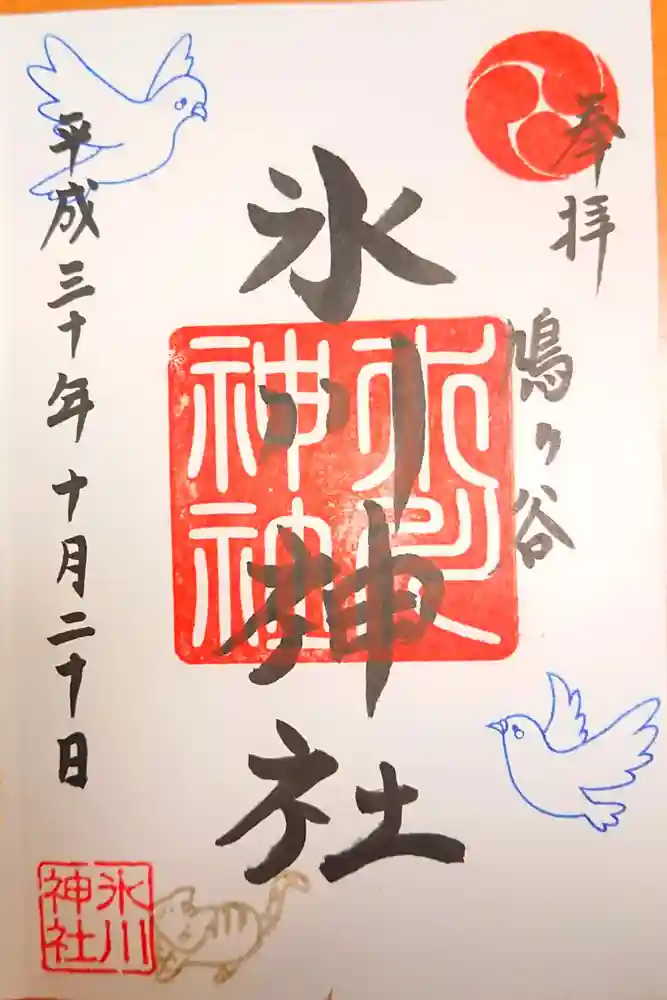 奉拝
鳩ヶ谷
氷川神社
平成三十年十月二十日
氷川
神社